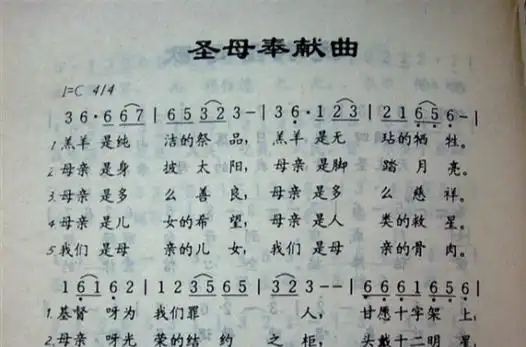 圣母奉献曲
1=C 4/4
3 6·667 | 65323- | 36·123 | 21656- |
1.羔羊是纯 洁的祭品，羔羊是无 玷的牺牲。
2.母亲是身 披太阳，母亲是脚 踏月亮。
3.母亲是多 么善良，母亲是多 么慈祥。
4.母亲是儿 女的希望，母亲是人 类的救星。
5.我们是母 亲的儿女，我们是母 亲的骨肉。
1 6162 | 123565 | 323-- | 6661656 |
1.基督呀为 我们罪 人，甘愿十字架上，
2.母亲呀光 荣的结约之柜，头戴十二明星，